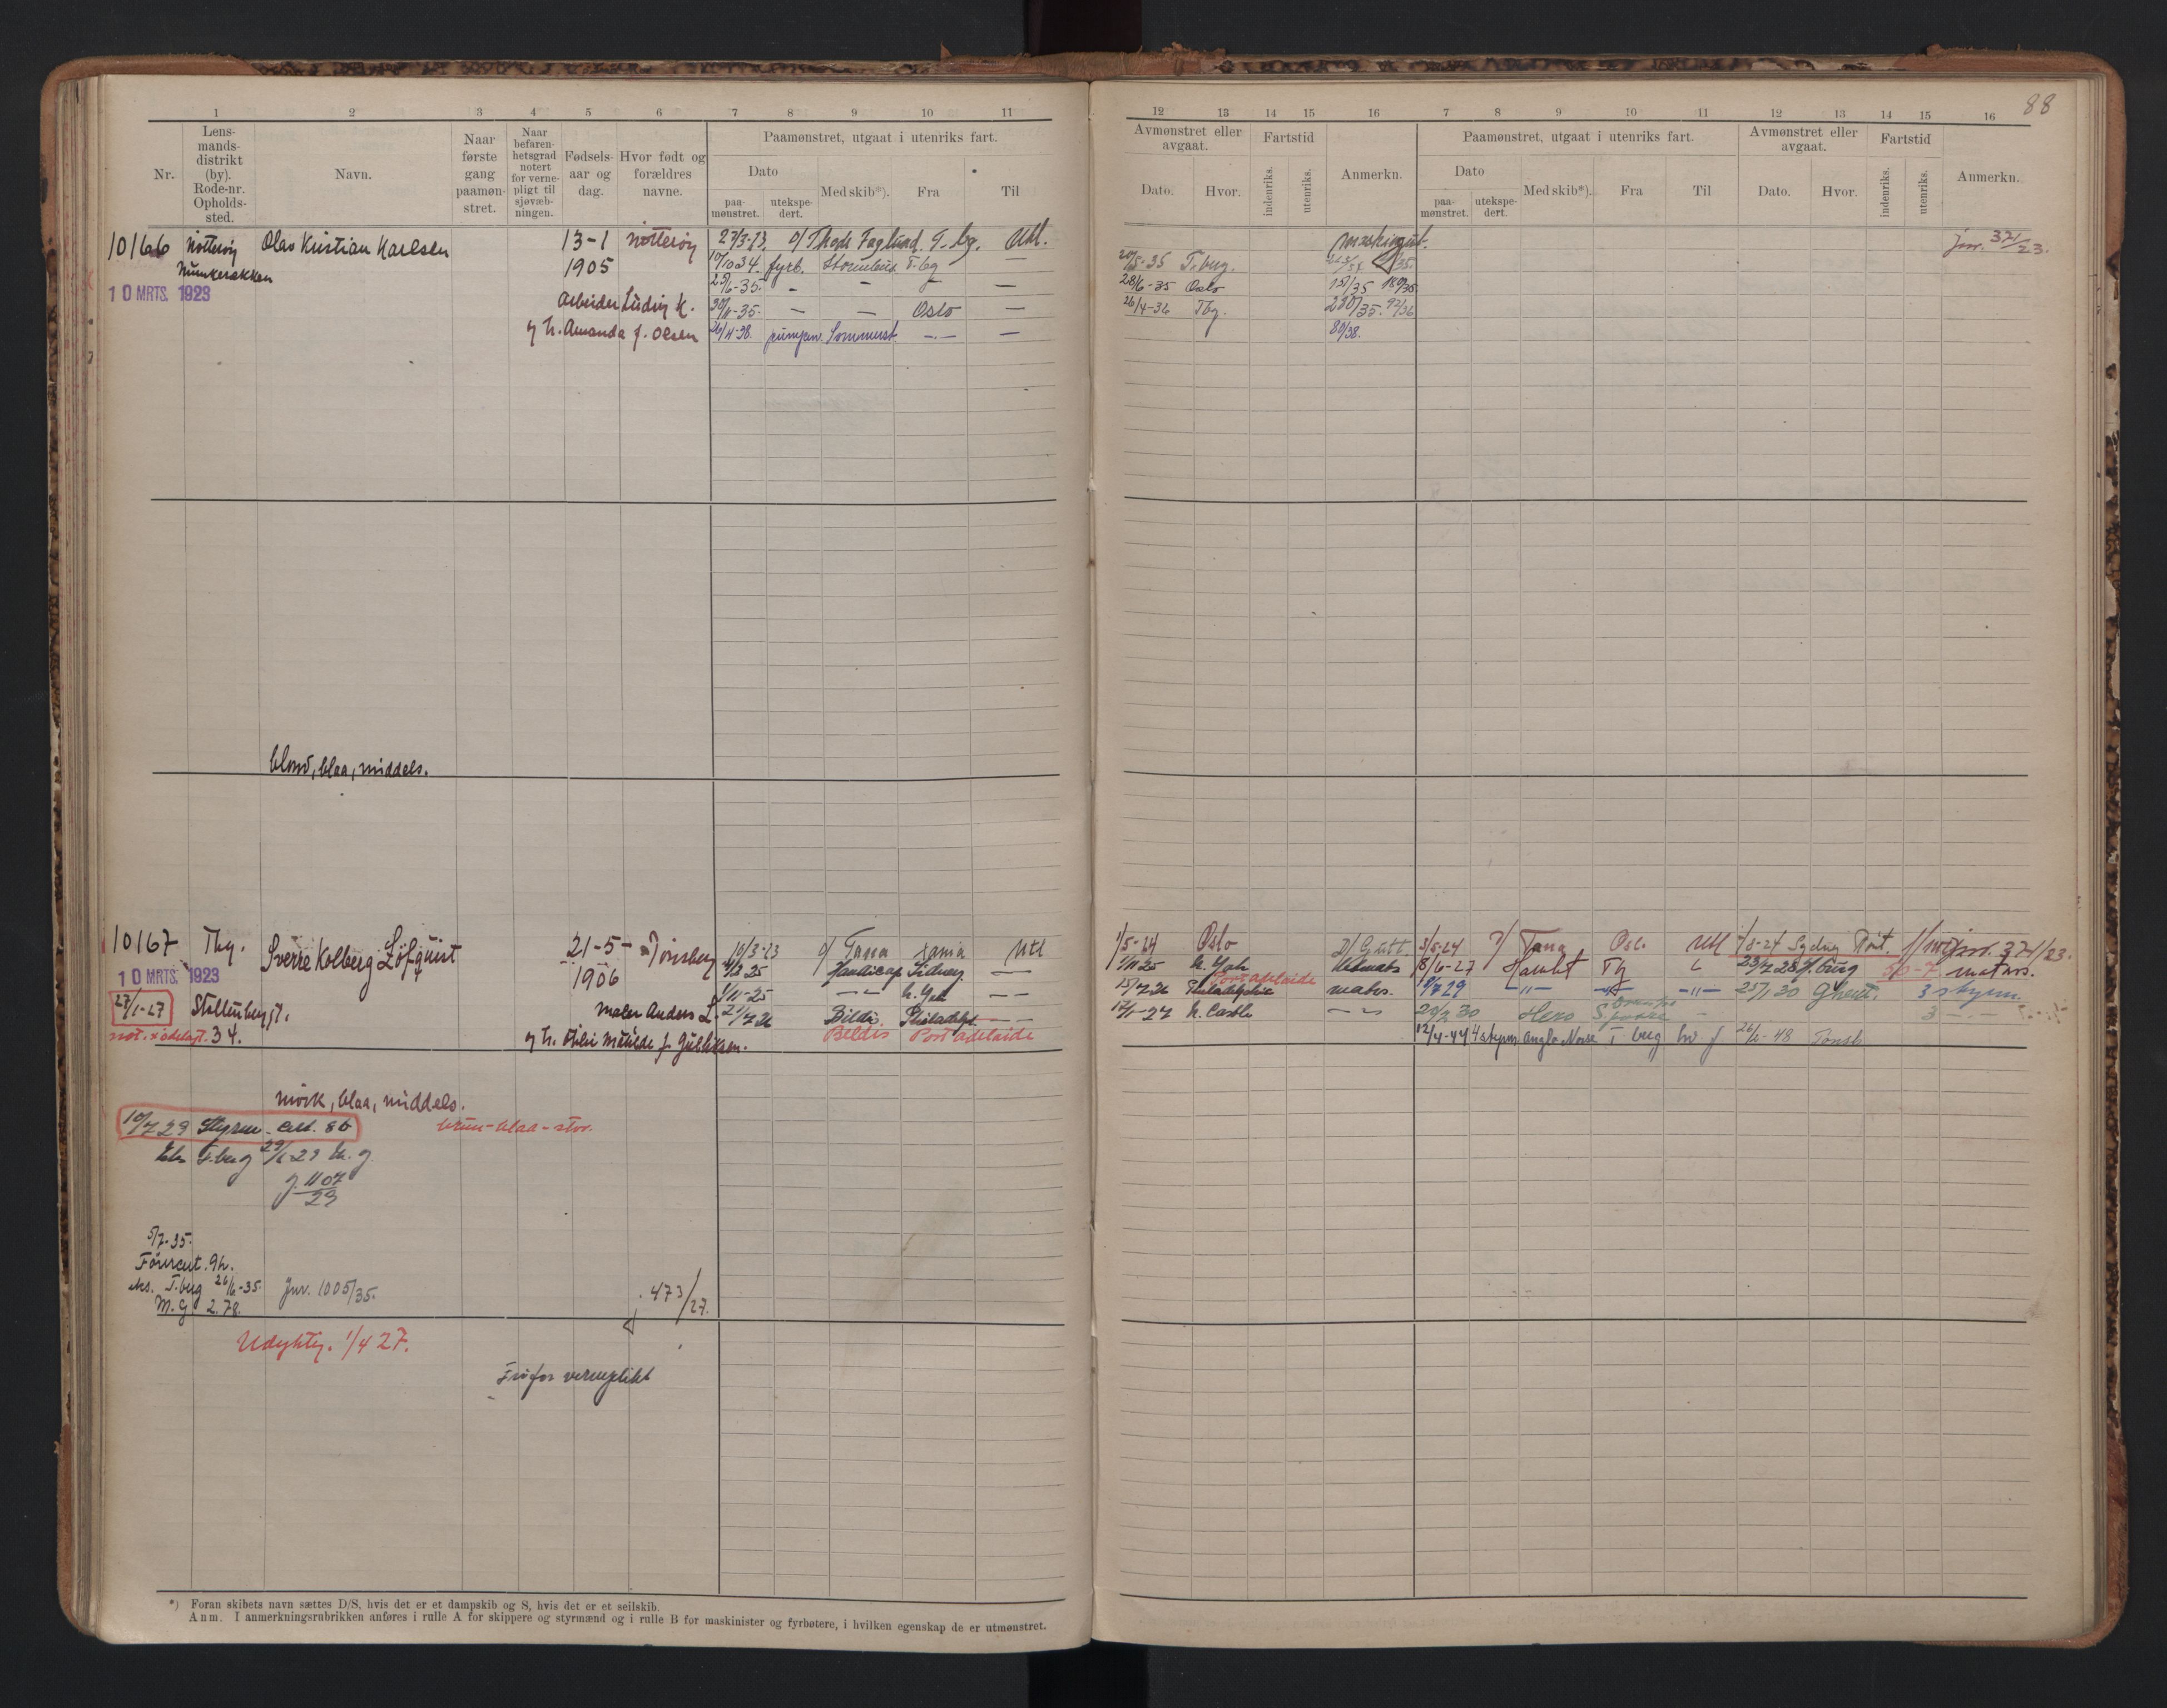 88
1 2 3 4 5 6 7 8 9 10 11
Nr.
Lens-
mands-
distrikt
(by).
Rode-nr.
Opholds-
sted.
Navn.
Naar
første
gang
paamøn-
stret.
Naar
befaren-
hetsgrad
notert
for verne-
pligt til
sjøvæb-
ningen.
Fødsels-
aar og
dag.
Hvor født og
forældres
navne.
Paamønstret, utgaat i utenriks fart.
Dato
paa-
mønstret.
utekspe-
dert.
Med skib*).
Fra
Til
12 13 14 15 16 7 8 9 10 11 12 13 14 15 16
Avmønstret eller
avgaat.
Dato.
Hvor.
Fartstid
indenriks.
utenriks.
Anmerkn.
Paamønstret, utgaat i utenriks fart.
Dato
paa-
mønstret.
utekspe-
dert.
Med skib*).
Fra
Til
Avmønstret eller
avgaat.
Dato.
Hvor.
Fartstid
indenriks.
utenriks.
Anmerkn.
10166 Nøtterøy Olav Kristian Karlsen 13-1 Nøtterøy 27/3-23 D/ Thode Fagelund T.bg. Utl.
jnr. 371/23.
Munkerekken 1905 10/10 34. fyrb. T.bg —
20/5-35 T.berg.
10 MRTS. 1923 29/6-35. — — —
28/6-35 Oslo
Arbeider Ludvig K. 30/11-35. — — Oslo —
26/4-36 Tbg.
og h. Amanda f. Olsen 26/11-38. pumpem. Sommerst. —.— —
80/38.
blond, blaa, middels.
10167 Tbg. Sverre Kolberg Löfquist 21-5- Tønsberg 10/3-23 D/ Tana Xania Utl
1/5-24 Oslo 3/5-24 D/ Tana Osl. Utl 1/8-24 Sydney jnr. 371/23.
10 MRTS. 1923 1906 Handicap Sidney —
1/11 25 N. Yok Letmats 8/6-27 Hamlet Tbg 23/7 28 H.burg 50-7 matros.
27/1-27 Stollenbergt. 1/11-25 —"— N. Yok — —
15/7 26 Philadelphia Port Adelaide matr. 19/7 29 —"— —"— —"— 25/1 30 Ghent. 3 styrm.
not. ødelagt. 34. Maler Anders L. 21/7 26 Bildis Philadelph. — —
17/1-27 N. Castle —"— 29/2 30 Hero 3 —.—
og h. Otilie Matilde f. Gulliksen. Beldis Port Adelaide
12/4-44 4 styrm Anglo Norse T berg 26/1-48 Tønsb
mørk, blaa, middels.
10/7 29 Styrm. cert. 86 brun-blaa-stor.
Eks T.berg 29/6 29 M. g.
J. 1107/29
5/7-35.
Førercert. 92.
eks. T.berg 26/6-35. Jnr. 1005/35.
M. G. 2.78.
J. 473/27.
Udyktig. 1/4 27.
Fri for verneplikt
*) Foran skibets navn sættes D/S, hvis det er et dampskib og S, hvis det er et seilskib.
Anm. I anmerkningsrubrikken anføres i rulle A for skippere og styrmænd og i rulle B for maskinister og fyrbøtere, i hvilken egenskap de er utmønstret.